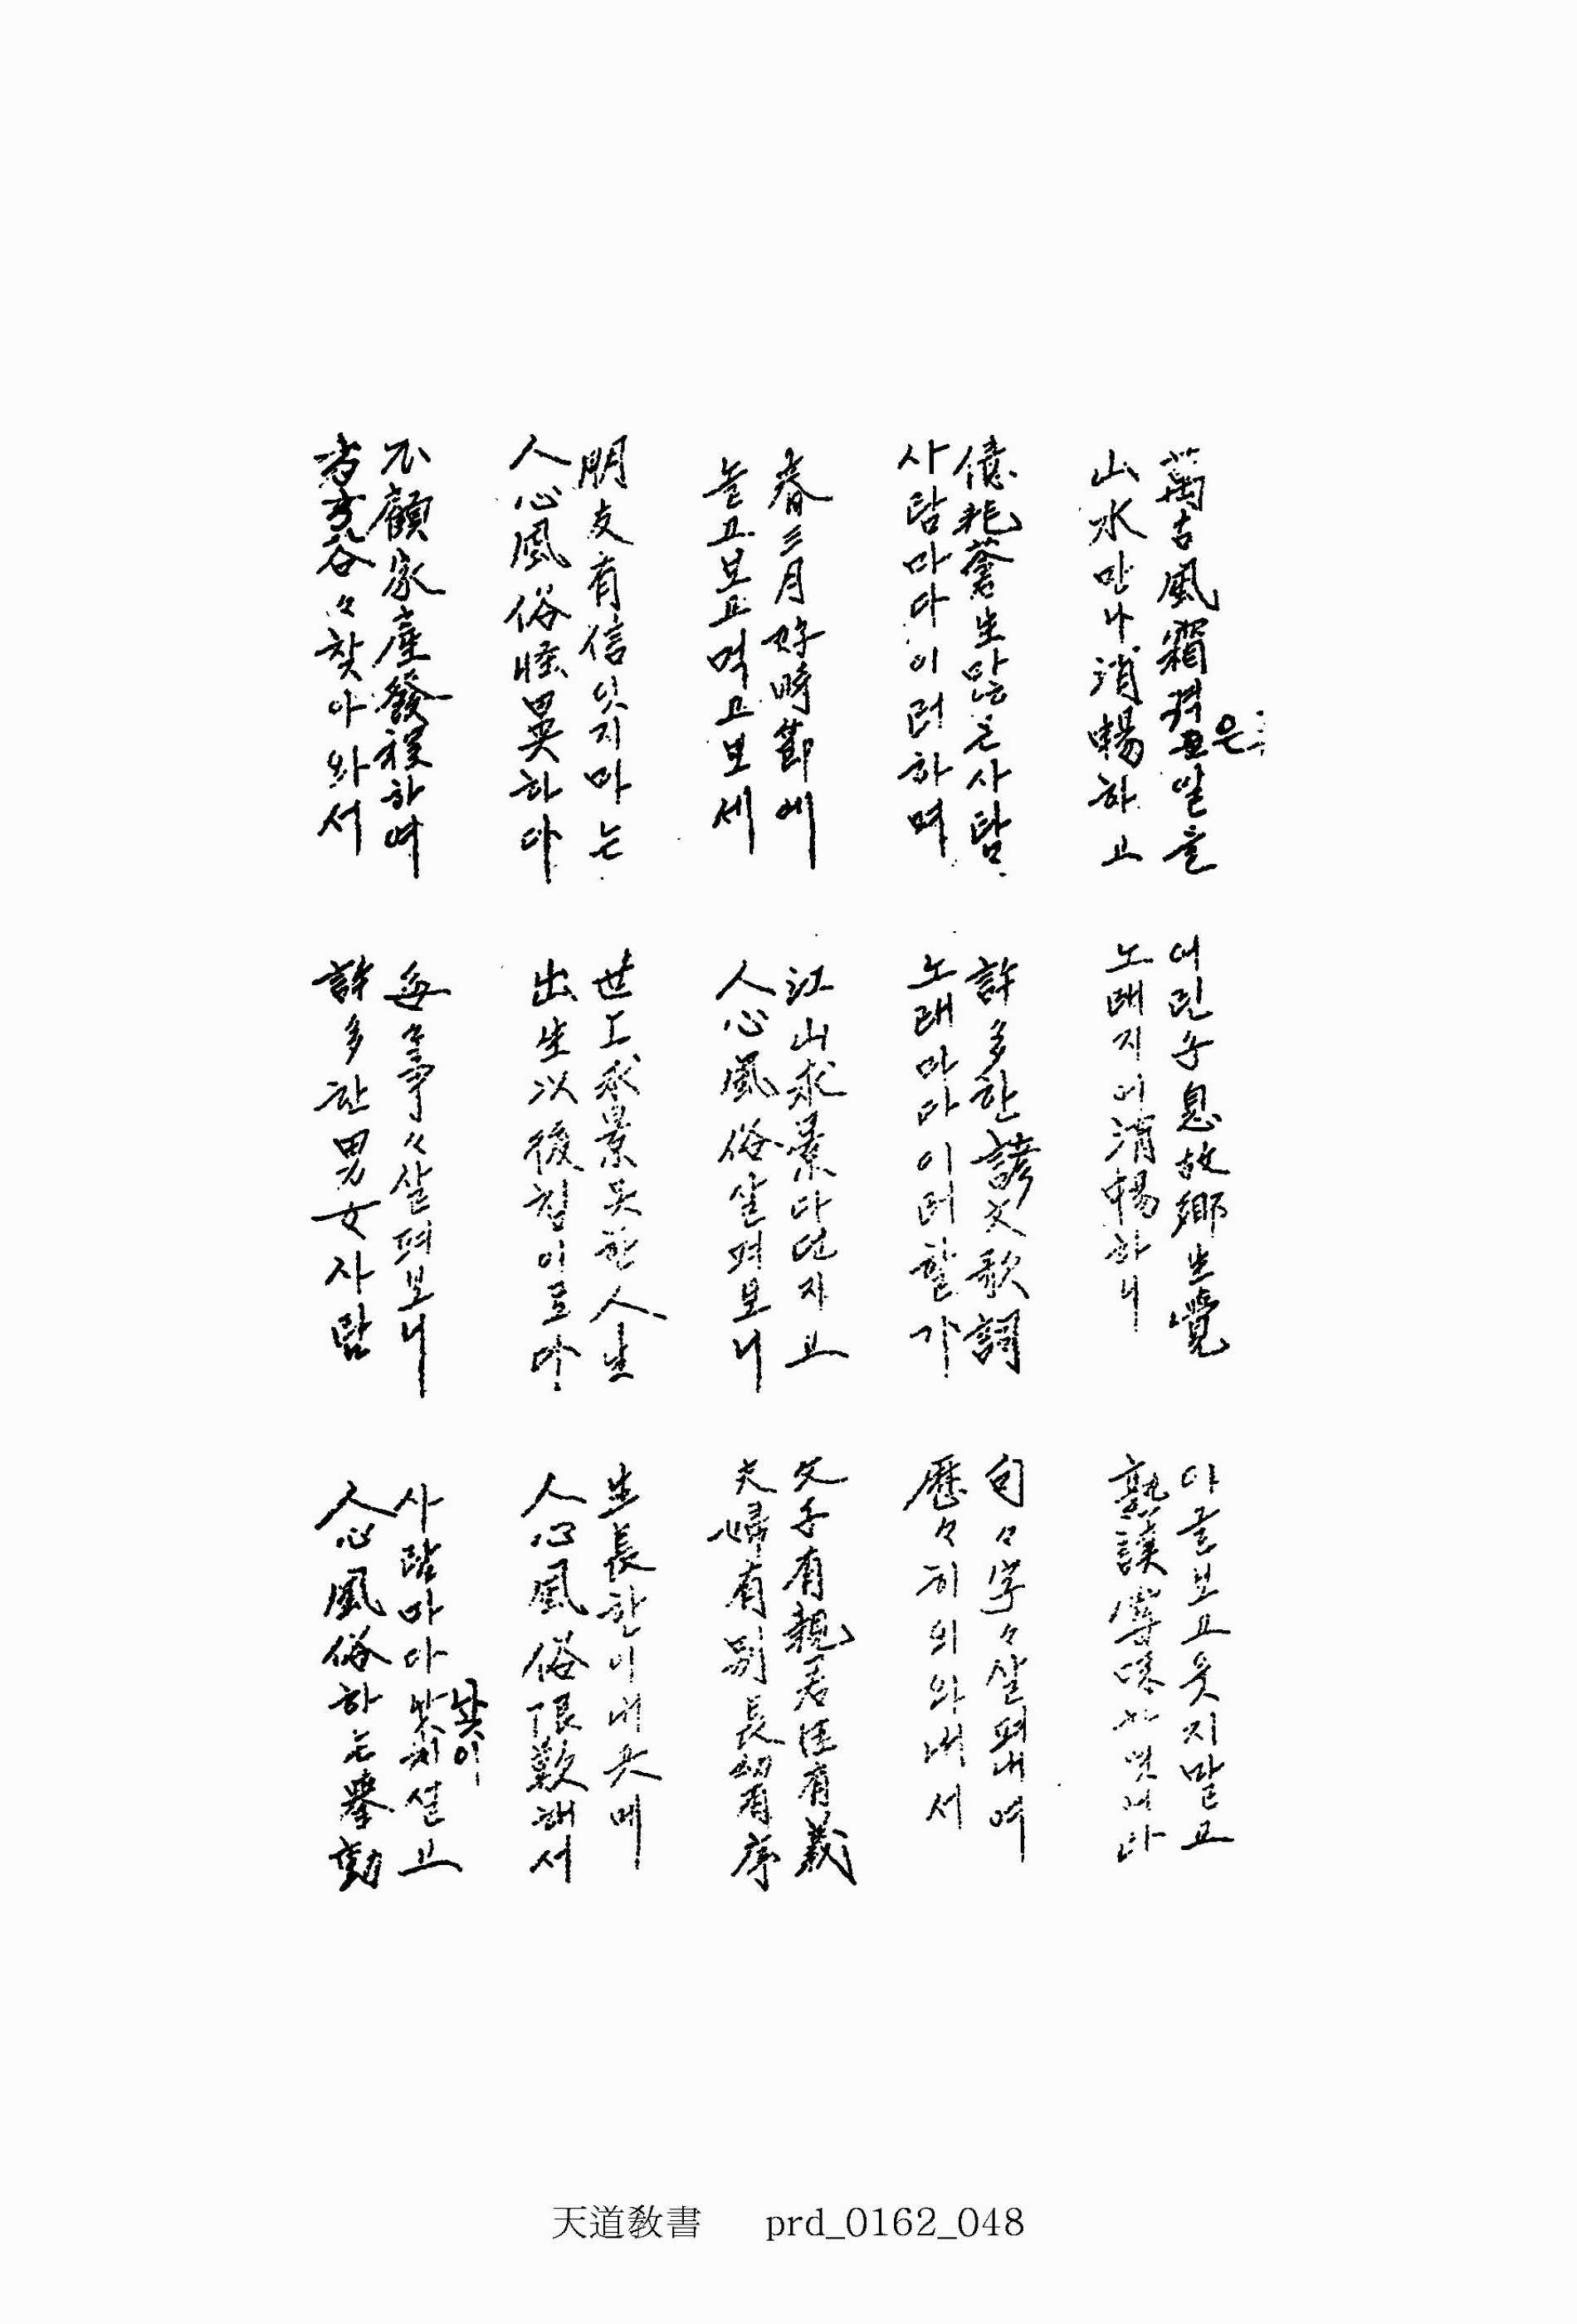 萬古風霜격은일을
山水만나消暢하고
어린子息故鄕生覺
노래지어消暢하니
이글보고웃지말고
熟讀嘗味하엿여라
億兆蒼生만은사람
사람마다이러하며
許多한諺文歌詞
노래마다이러할가
句々字々살펴내여
歷々히외와내서
春三月好時節에
놀고보고먹고보세
江山求景다던지고
人心風俗살펴보니
父子有親君臣有義
夫婦有別長幼有序
朋友有信잇지마는
人心風俗怪異하다
世上求景못한人生
出生以後첨이로다
生長한이내곳에
人心風俗恨歎해서
不顧家産發程하여
方方谷々찾아와서
每々事々살펴보니
許多한男女사람
사람마다낯이설고
人心風俗하는擧動
天道敎書 prd_0162_048